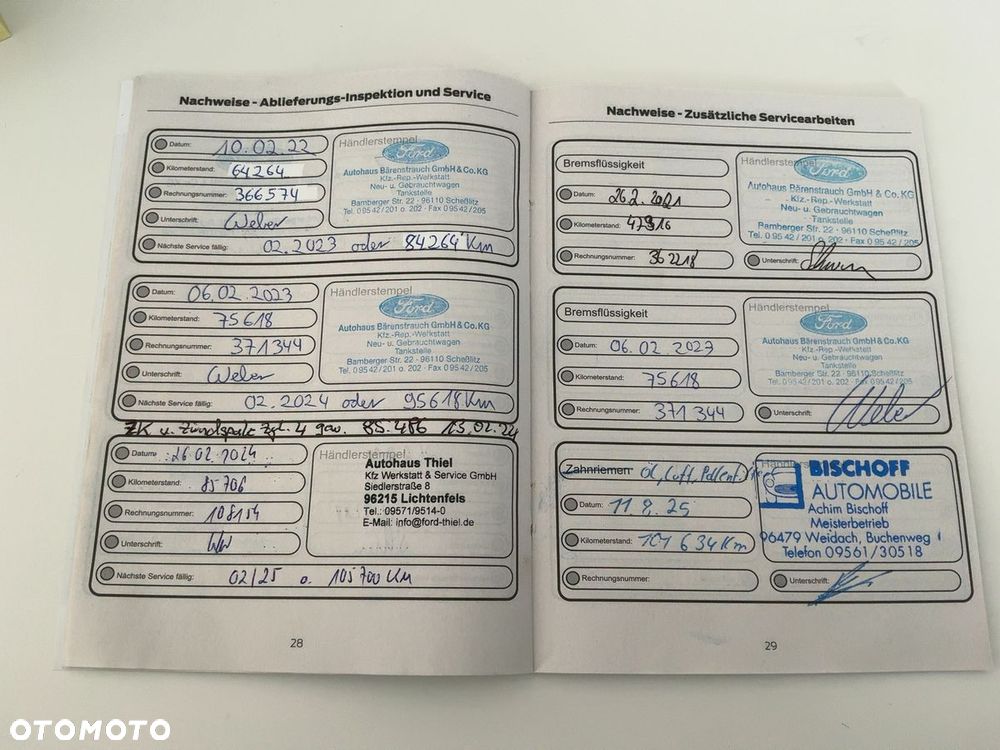 Nachweise - Ablieferungs-Inspektion und Service
Datum: 10.02.22
Kilometerstand: 64264
Rechnungsnummer: 366574
Unterschrift: Weber
Nächste Service fällig: 02.2023 oder 84264 Km
Händlerstempel
Ford
Autohaus Bärenstrauch GmbH & Co. KG
Kfz.-Rep.-Werkstatt
Neu- u. Gebrauchtwagen
Tankstelle
Bamberger Str. 22 · 96110 Scheßlitz
Tel. 0 95 42 / 201 o. 202 · Fax 0 95 42 / 205
Datum: 06.02.2023
Kilometerstand: 75618
Rechnungsnummer: 371344
Unterschrift: Weber
Nächste Service fällig: 02.2024 oder 95618 Km
Händlerstempel
Ford
Autohaus Bärenstrauch GmbH & Co. KG
Kfz.-Rep.-Werkstatt
Neu- u. Gebrauchtwagen
Tankstelle
Bamberger Str. 22 · 96110 Scheßlitz
Tel. 0 95 42 / 201 o. 202 · Fax 0 95 42 / 205
ZK u. 4 85.486 15.02.24
Datum: 26.02.2024
Kilometerstand: 85706
Rechnungsnummer: 108154
Unterschrift:
Nächste Service fällig: 02/25 o. 105700 Km
Händlerstempel
Autohaus Thiel
Kfz Werkstatt & Service GmbH
Siedlerstraße 8
96215 Lichtenfels
Tel.: 09571/9514-0
E-Mail: info@ford-thiel.de
28
Nachweise - Zusätzliche Servicearbeiten
Bremsflüssigkeit
Datum: 26.2.2021
Kilometerstand:
Rechnungsnummer: 362218
Unterschrift:
Händlerstempel
Ford
Autohaus Bärenstrauch GmbH & Co. KG
Kfz.-Rep.-Werkstatt
Neu- u. Gebrauchtwagen
Tankstelle
Bamberger Str. 22 · 96110 Scheßlitz
Tel. 0 95 42 / 201 o. 202 · Fax 0 95 42 / 205
Bremsflüssigkeit
Datum: 06.02.2023
Kilometerstand: 75618
Rechnungsnummer: 371344
Unterschrift: Weber
Händlerstempel
Ford
Autohaus Bärenstrauch GmbH & Co. KG
Kfz.-Rep.-Werkstatt
Neu- u. Gebrauchtwagen
Tankstelle
Bamberger Str. 22 · 96110 Scheßlitz
Tel. 0 95 42 / 201 o. 202 · Fax 0 95 42 / 205
Zahnriemen Öl, Luft, Pollenfilter
Datum: 11.8.25
Kilometerstand: 101634 Km
Rechnungsnummer:
Unterschrift:
BISCHOFF
AUTOMOBILE
Achim Bischoff
Meisterbetrieb
96479 Weidach, Buchenweg 1
Telefon 09561/30518
29
OTOMOTO